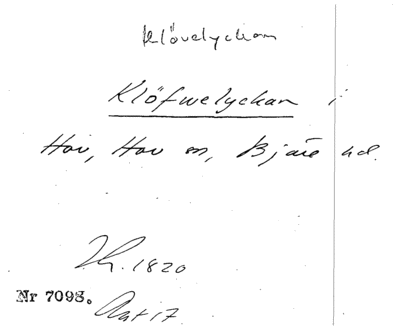 Klövelyckan
Klöfwelyckan i
Hov, Hov sn, Bjäre hd.
1820
Nr 7098.
Akt 17